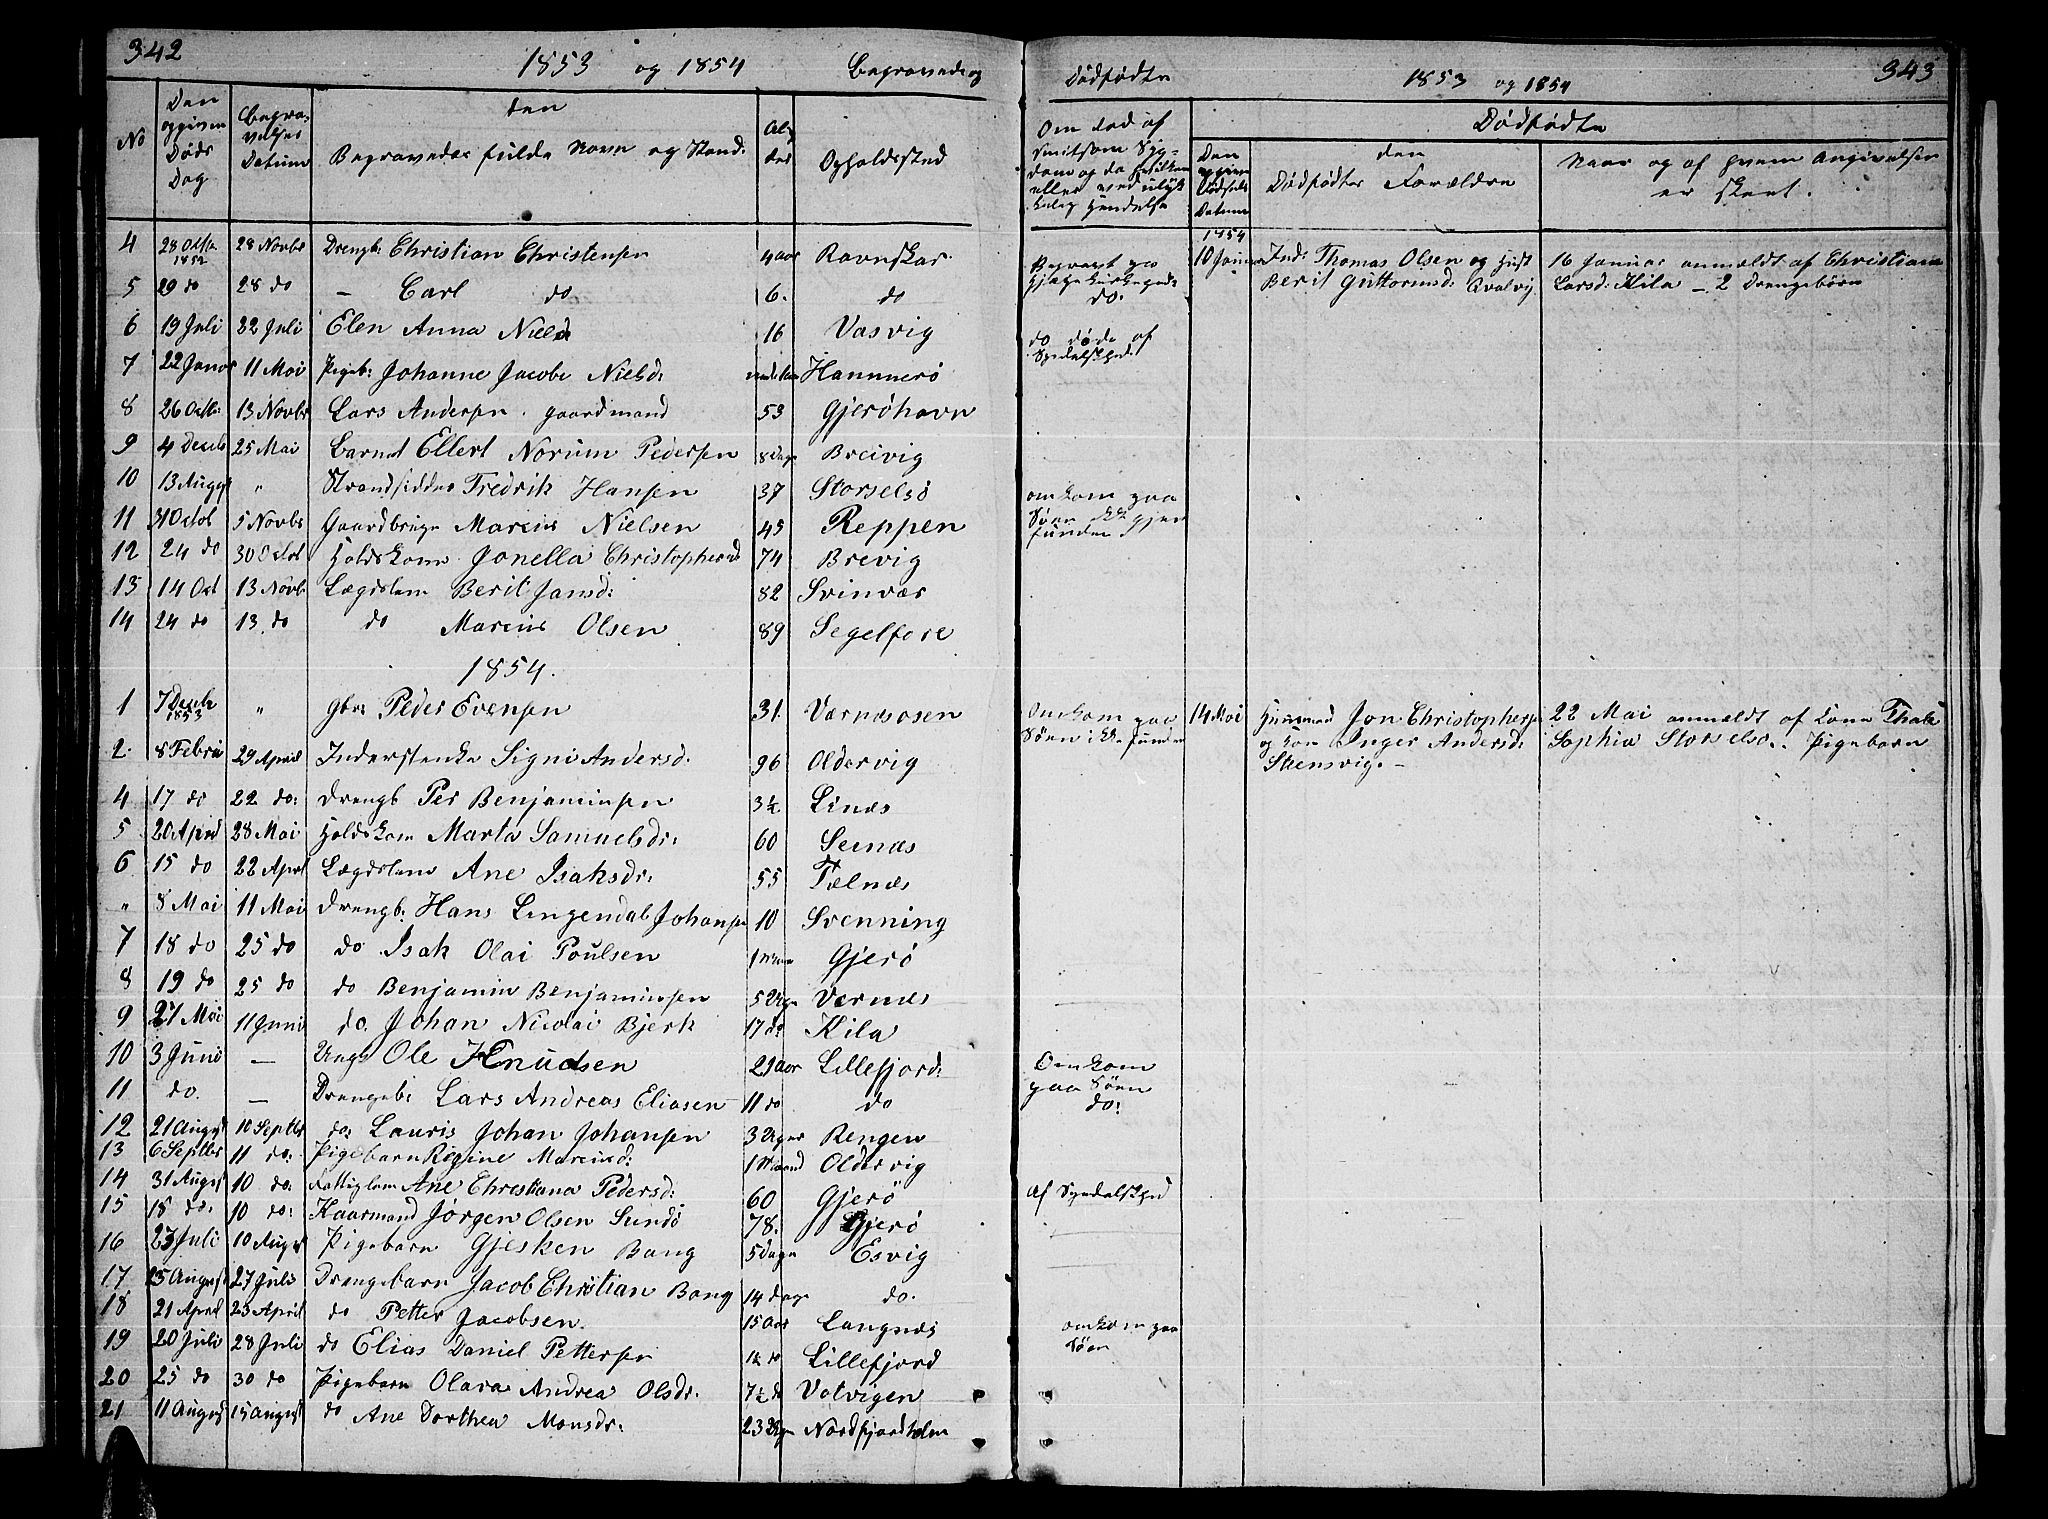 342
1853 og 1854
Begravede og
No
Den opgivne Døds Dag
Begravelses Datum
den Begravedes fulde Navn og Stand.
Alder
Opholdssted
4 28 Octbr 1852 28 Novbr Drengb. Christian Christensen 4 aar Ravnskar
5 29 do 28 do — Carl do 6. do
6 19 Juli 22 Juli Elen Anna Nielsd 16 Vasvig
7 22 Januar 11 Mai Pigeb: Johanne Jacobe Nielsd: Hammerø
8 26 Octbr 13 Novbr Lars Andersen gaardmand 53 Gjerøhavn
9 4 Decbr 25 Mai Barnet Ellert Norum Pedersen 8 dage Breivig
10 13 Augst " Strandsidder Fredrik Hansen 37 Storselsø
11 31 Octob 5 Novbr Gaardbruger Marcus Nielsen 45 Reppen
12 24 do 30 Octob Holdskone Jonella Christophersd 74 Brevig
13 14 Oct 13 Novb Lægdslem Berit Jansd: 82 Svinvær
14 24 do 13 do do Marcus Olsen 89 Segelfore
1854.
1 7 Decbr 1853 " Gbr: Peder Evensen 31. Værnæsosen
2. 8 Febru 29 April Inderstenke Signi Andersd. 96 Oldervig
4 17 do 22 do: Drengb Per Benjaminsen 3½ Linæs
5 20 April 28 Mai Holdskone Marta Samuelsdr: 60 Sernæs
6 15 do 22 April Lægdslem Ane Isaksdr: 55 Telnæs
" 8 Mai 11 Mai Drengb: Hans Lingendal Johansen 10 Svenning
7 18 do 25 do do Isak Olai Poulsen 1 Gjerø
8 19 do 25 do do Benjamin Benjaminsen 5 Uger Værnæs
9 27 Mai 11 Juni do. Johan Nicolai Bjerk 17 do Kila
10 3 Juni — Ungk Ole Knudsen 29 aar Lillefjord:
11 do. — Drengeb: Lars Andreas Eliasen 11 do do
12 21 August 10 Septbr do: Lauris Johan Johansen 3 Uger Rengen
13 6 Septbr 11 do: Pigebarn Regine Marcusd: 1 Maaned Oldervig
14 31 August 10 do: Fattiglem Ane Christiana Pedersd: 60 Gjerö
15 18 do: 10 do: Kaarmand Jørgen Olsen Sundø 78. Gjerø
16 23 Juli 10 August Pigebarn Gjesken Bang 5 dage Esvig
17 25 August 27 Juli Drengebarn Jacob Christian Bang 14 dage do.
18 21 April 23 April do Petter Jacobsen. 15 Aar Langnæs
19 20 Juli 28 Juli do Elias Daniel Pettersen 1½ do Lillefjord
20 25 do 30 do Pigebarn Olava Andrea Olsdr: 7½ do Vatvigen
21 11 August 15 August do Ane Dorthea Monsdr: 23 Uger Nordfjordholm
Dødfødte
1853 og 1854
343
Om død af smitsom Sygdom og da hvilken eller ved ulykkelig Hændelse
Dødfødte
Den opgivne Fødsels Datum
den Dødfødtes Forældre
Naar og af hvem Angivelsen er skeet.
Begravet paa Gjesø Kirkegaard
do:
do døde af Spedalskhed
omkom paa Søen ikke gjenfunden
Omkom paa Søen ikke funden
Omkom paa Søen
do:
Af Spedalskhed
omkom paa Søen
1854
10 Januar Ind: Thomas Olsen og Hust Berit Guttormsd: Qvalvig
16 Januar anmeldt af Christian Larsd: Kila — 2 Drengebørn
14 Mai Huusmand Jon Christophersen og Kone Inger Andersd: Stensvig. —
22 Mai anmeldt af Kone Thale Sophia Storselsø. Pigebarn